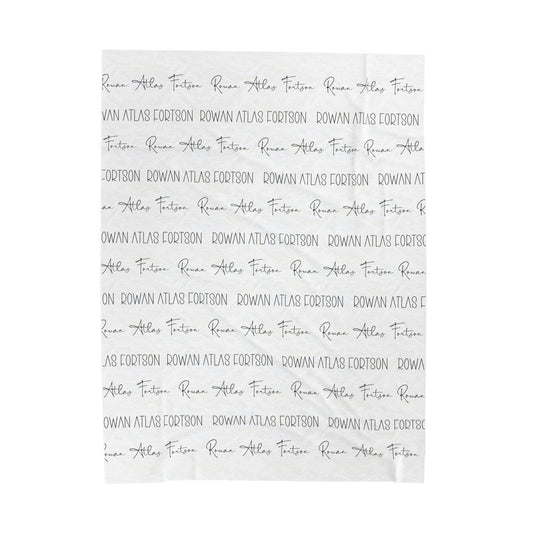 Rowan Atlas Fortson Rowan Atlas Fortson Rowan Atlas Fortson
ROWAN ATLAS FORTSON ROWAN ATLAS FORTSON ROWAN ATLAS FORTSON
Fortson Rowan Atlas Fortson Rowan Atlas Fortson Rowan Atlas
FORTSON ROWAN ATLAS FORTSON ROWAN ATLAS FORTSON ROWAN ATLAS
Atlas Fortson Rowan Atlas Fortson Rowan Atlas Fortson R
ROWAN ATLAS FORTSON ROWAN ATLAS FORTSON ROWAN ATLAS FORTSON
Atlas Fortson Rowan Atlas Fortson Rowan Atlas Fortson Rowan
ATLAS FORTSON ROWAN ATLAS FORTSON ROWAN ATLAS FORTSON ROWAN ATLAS FORTSON
Rowan Atlas Fortson Rowan Atlas Fortson Rowan Atlas Fortson
ATLAS FORTSON ROWAN ATLAS FORTSON ROWAN ATLAS FORTSON ROWAN
Atlas Fortson Rowan Atlas Fortson Rowan Atlas Fortson Rowan
ROWAN ATLAS FORTSON ROWAN ATLAS FORTSON ROWAN ATLAS FORTSON
Rowan Atlas Fortson Rowan Atlas Fortson Rowan Atlas Fortson